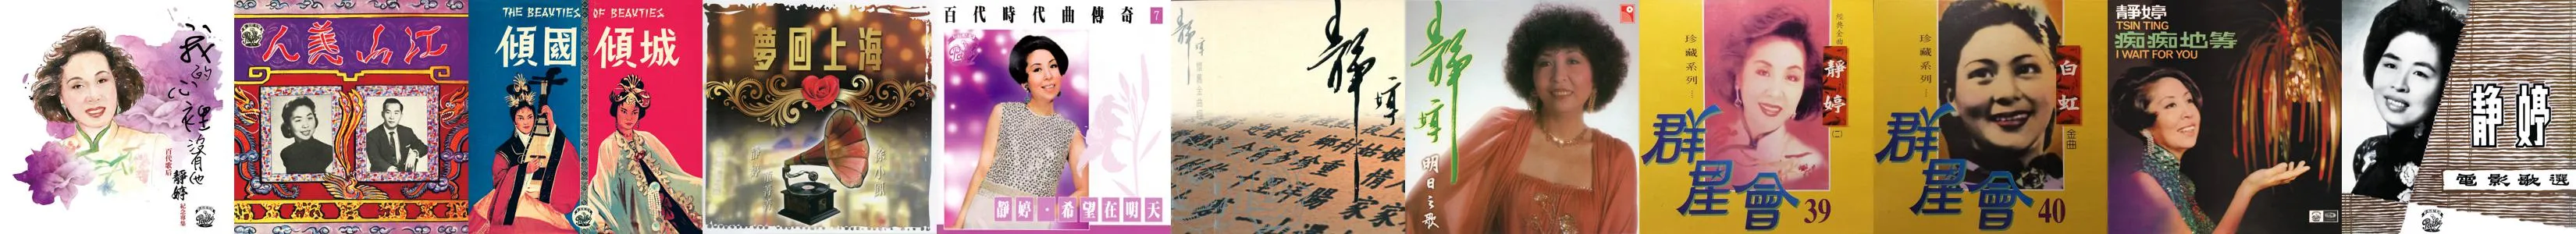 我的心裡沒有他
百代歌后
靜婷
紀念專集
江山美人
THE BEAUTIES OF BEAUTIES
傾國傾城
夢回上海
百代時代曲傳奇 7
靜婷·希望在明天
靜婷
靜婷
靜婷
明日之歌
經典金曲
珍藏系列
靜婷
(二)
群星會 39
珍藏系列
白虹
金曲
群星會 40
靜婷
TSIN TING
痴痴地等
I WAIT FOR YOU
靜婷
電影歌選